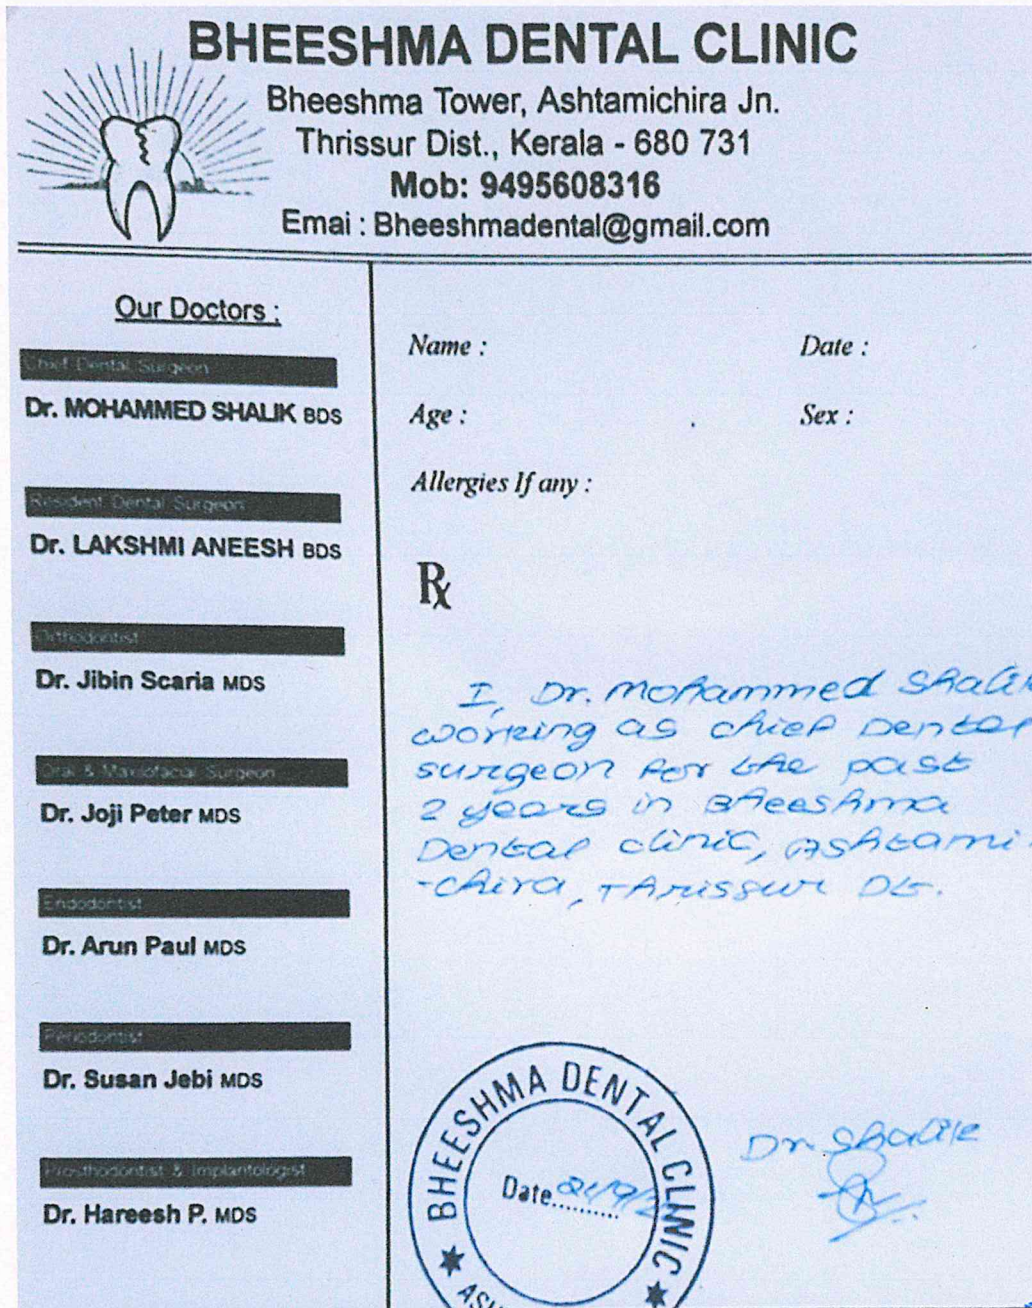 BHEESHMA DENTAL CLINIC
Bheeshma Tower, Ashtamichira Jn.
Thrissur Dist., Kerala - 680 731
Mob: 9495608316
Emai : Bheeshmadental@gmail.com
Our Doctors :
Chief Dental Surgeon
Dr. MOHAMMED SHALIK BDS
Resident Dental Surgeon
Dr. LAKSHMI ANEESH BDS
Orthodontist
Dr. Jibin Scaria MDS
Oral & Maxillofacial Surgeon
Dr. Joji Peter MDS
Endodontist
Dr. Arun Paul MDS
Periodontist
Dr. Susan Jebi MDS
Prosthodontist & Implantologist
Dr. Hareesh P. MDS
Name :
Date :
Age :
Sex :
Allergies If any :
Rx
I, Dr. Mohammed Shalik
working as chief Dental
surgeon for the past
2 years in Bheeshma
Dental clinic, Ashtami-
-chira, Thrissur Dt.
BHEESHMA DENTAL CLINIC
Date
Dr Shalik